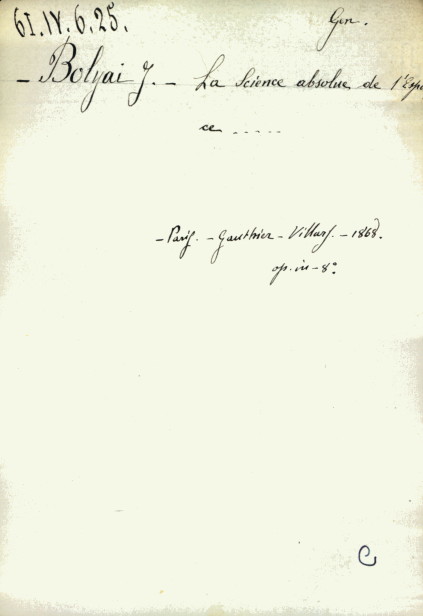 61.IV.6.25.
Gen.
- Boljai J. - La Science absolue de l'Espa
ce .....
- Paris. - Gauthier - Villars. - 1868.
op. in - 8°.
C